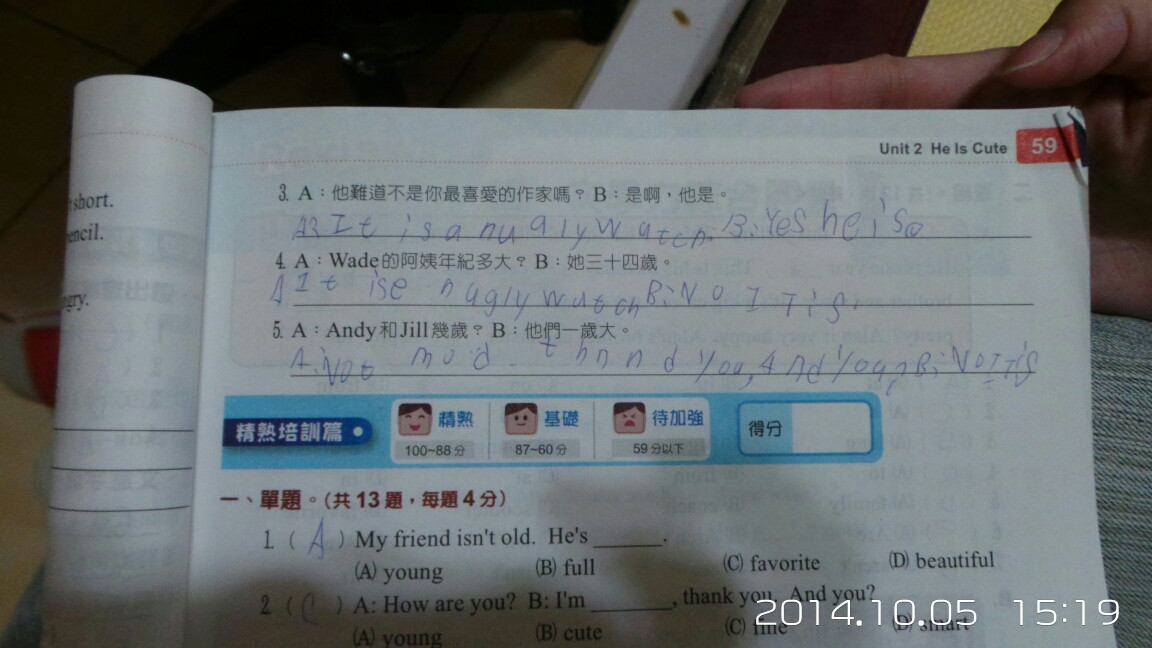 Unit 2 He Is Cute 59
short.
encil.
gry.
3. A：他難道不是你最喜愛的作家嗎？B：是啊，他是。
A: It is an ugly watch. B: Yes he is.
4. A：Wade的阿姨年紀多大？B：她三十四歲。
A It is nugly watch B: No ITis.
5. A：Andy和Jill幾歲？B：他們一歲大。
A: Not And You B: NO ITIS
精熟培訓篇 精熟 100~88分 基礎 87~60分 待加強 59分以下 得分
一、單題。(共13題，每題4分)
1. ( A ) My friend isn't old. He's ______.
(A) young (B) full (C) favorite (D) beautiful
2. ( C ) A: How are you? B: I'm ______, thank you. And you?
(A) young (B) cute (C) fine (D) smart
2014.10.05 15:19